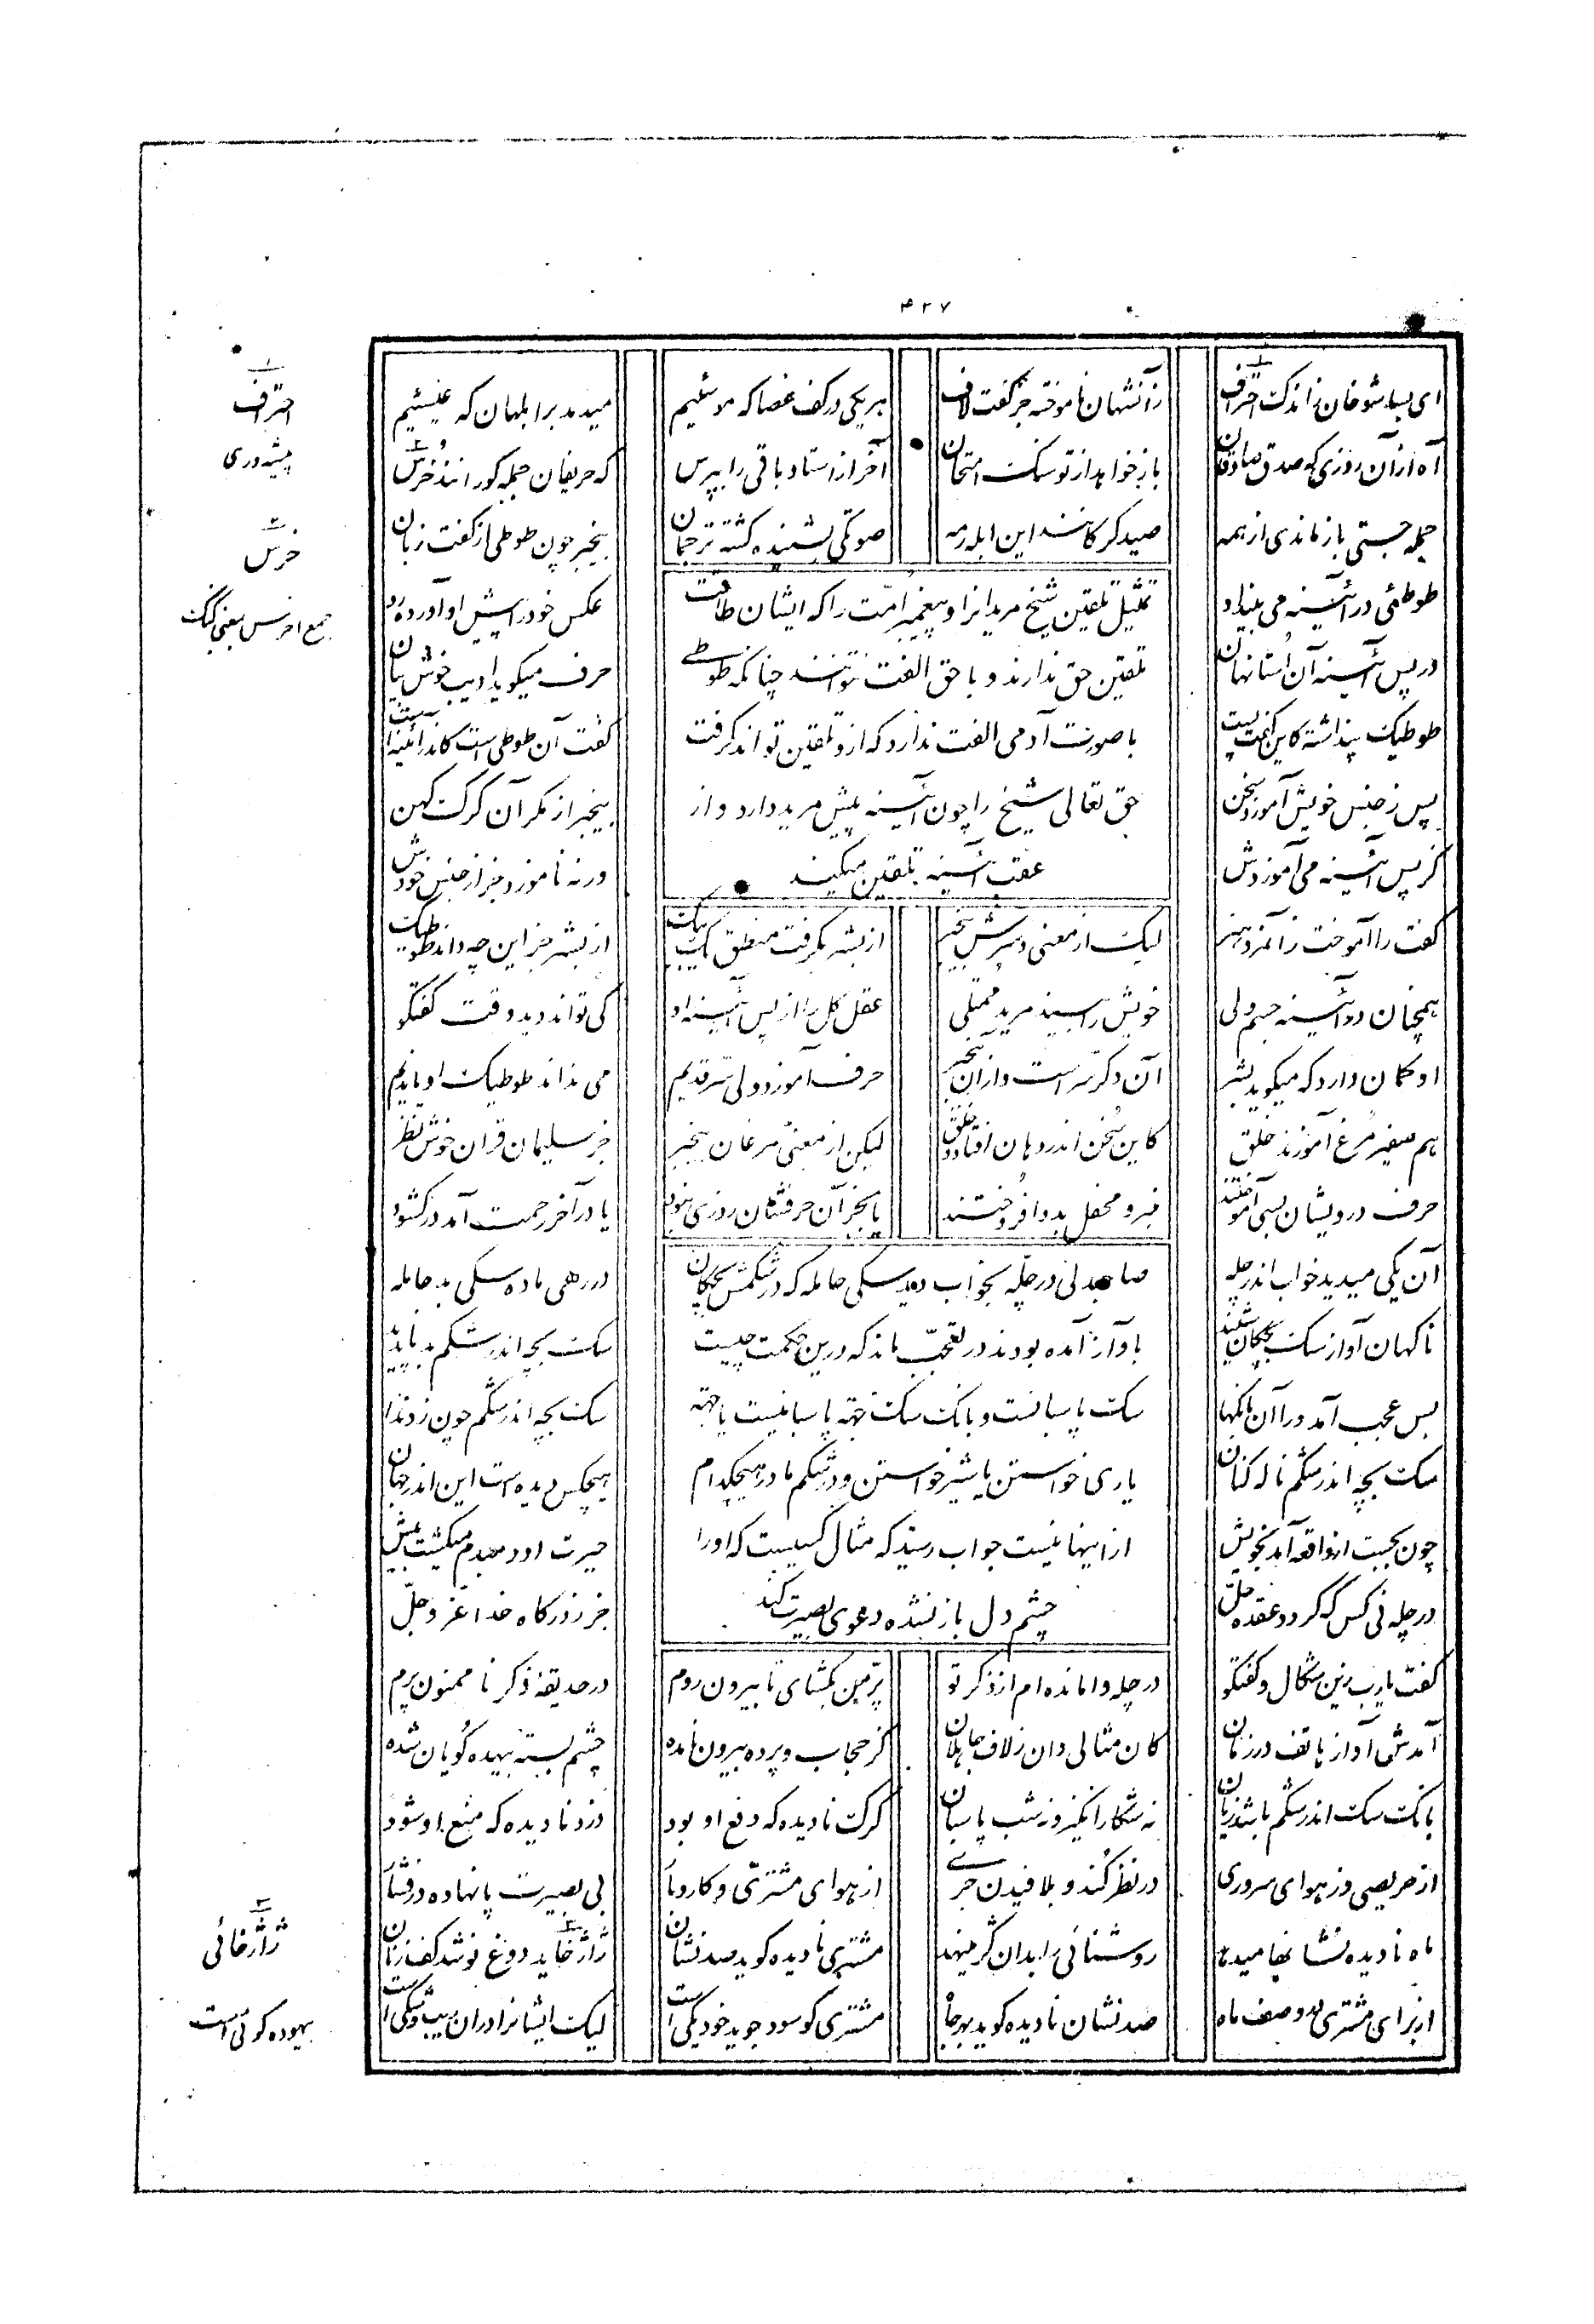 ۴۲۷
ای بسا شوخان ز اندک احتراف زآنشهان ناموخته جز گفت لاف هریکی در کف عصا که موسئیم میدمد بر ابلهان که عیسئیم
آه از آن روزی که صدق صادقان باز خواهد از تو سنگ امتحان آخر از استاد باقی را بپرس که حریفان جمله کورانند و خرس
جمله جستی باز ماندی از همه صید گرگانند این ابله رمه صورتی بشنیده گشته ترجمان بیخبر چون طوطی از گفت زبان
تمثیل تلقین شیخ مریدانرا و پیغمبر امّت را که ایشان طاقت
تلقین حق ندارند و با حق الفت نتوانند چنانکه طوطی
با صورت آدمی الفت ندارد که ازو تلقین تواند گرفت
حق تعالی شیخ را چون آئینه پیش مرید دارد و از
عقب آئینه تلقین میکند
طوطئی در آئینه می بیند او عکس خود را پیش او آورده رو
در پس آئینه آن استا نهان حرف میگوید ادیب خوش بیان
طوطیک پنداشته کاین گفت پست گفت آن طوطی است کاندر آئینه است
پس ز جنس خویش آموزد سخن بیخبر از مکر آن گرگ کهن
کز پس آئینه می آموزدش ورنه ناموزد جز از جنس خودش
گفت را آموخت زآنمرد هنر لیک از معنی و سرش بیخبر از بشر بگرفت منطق یک بیک از بشر جز این چه داند طوطیک
همچنان در آئینه جسم ولی خویش را بیند مرید ممتلی عقل کل را از پس آئینه او کی تواند دید وقت گفتگو
او گمان دارد که میگوید بشر آن دگر سرّ است و از آن بیخبر حرف آموزد ولی سرّ قدیم می نداند طوطیک او یا ندیم
هم صفیر مرغ آموزند خلق کاین سخن اندر دهان افتاد و حلق لیکن از معنی مرغان بیخبر جز سلیمان قران خوش نظر
حرف درویشان بسی آموختند منبر و محفل بدو افروختند یا بجز آن حرفشان روزی نبود یا در آخر رحمت آمد در گشود
صاحبدلی در چلّه بخواب دید سگی حامله که در شکمش سگبچگان
بآواز آمده بودند در تعجّب ماند که درین حکمت چیست
سگ پاسبانست و بانگ سگ جهة پاسبانیست یا جهة
یاری خواستن یا شیر خواستن و در شکم مادر هیچکدام
از اینها نیست جواب رسید که مثال کسیست که اورا
چشم دل باز نشده دعوی بصیرت کند
آن یکی میدید خواب اندر چله در رهی ماده سگی بد حامله
ناگهان آواز سگ بچگان شنید سگ بچه اندر شکم بد ناپدید
بس عجب آمد ورا آن بانگها سگ بچه اندر شکم چون زد ندا
سگ بچه اندر شکم ناله کنان هیچکس دیده است این اندر جهان
چون بجست از واقعه آمد بخویش حیرت او دمبدم میگشت بیش
در چله نی کس که گردد عقده حلّ جز ز درگاه خدا عزّ و جلّ
گفت یارب زین شکال و گفتگو در چله وامانده ام از ذکر تو پرّ من بگشای تا بیرون روم در حدیقه ذکر ناممنون پرم
آمدش آواز هاتف در زمان کان مثالی دان ز لاف جاهلان کز حجاب و پرده بیرون نامده چشم بسته بیهده گویان شده
بانگ سگ اندر شکم باشد زیان نه شکار انگیز و نه شب پاسبان گرگ نادیده که دفع او بود دزد نادیده که منع او شود
از حریصی وز هوای سروری در نظر کند و بلافیدن جری از هوای مشتری و کاروبار بی بصیرت پا نهاده در فشار
ماه نادیده نشانها میدهد روشنائی را بدان کژ مینهد مشتری نادیده گوید صد نشان ژاژ خاید دوغ نوشد کف زنان
از برای مشتری در وصف ماه صد نشان نادیده گوید بهر جاه مشتری کو سود جوید خود یکی است لیک ایشانرا در آن ریب و شکی است
۱
احتراف
پیشه وری
۲
خرس
جمع اخرس بمعنی گنگ
۳
ژاژخائی
بیهوده گوئی است